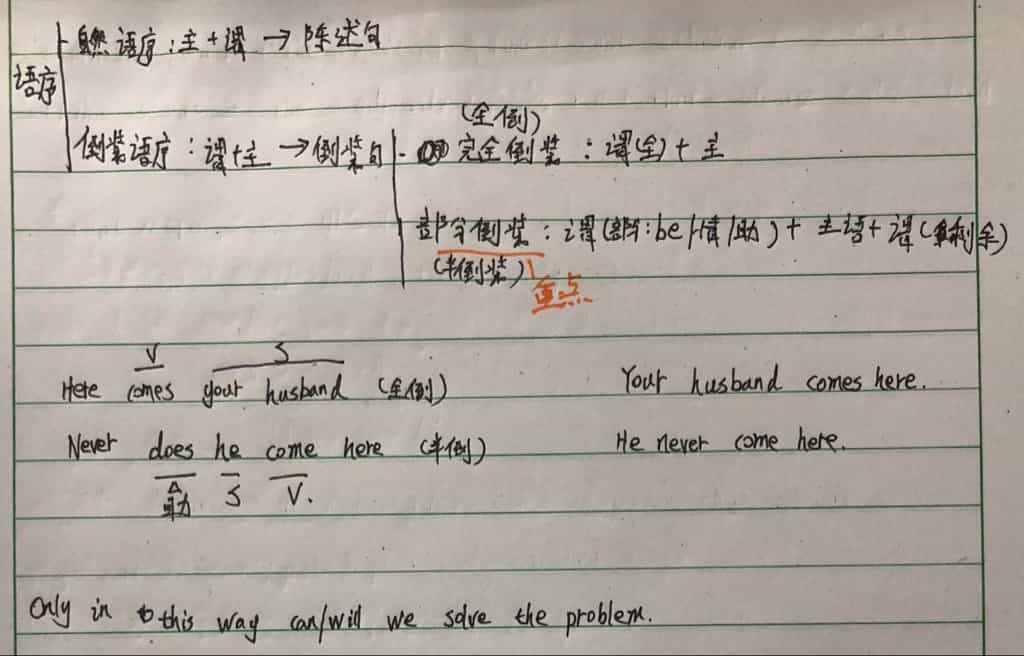 自然语序：主+谓 → 陈述句
语序
(全倒)
倒装语序：谓+主 → 倒装句 完全倒装：谓(全)+主
部分倒装：谓(部分:be/情/助)+主语+谓(剩余)
(半倒装) 重点
V S
Here comes your husband (全倒) Your husband comes here.
Never does he come here (半倒) He never come here.
助 S V.
Only in this way can/will we solve the problem.